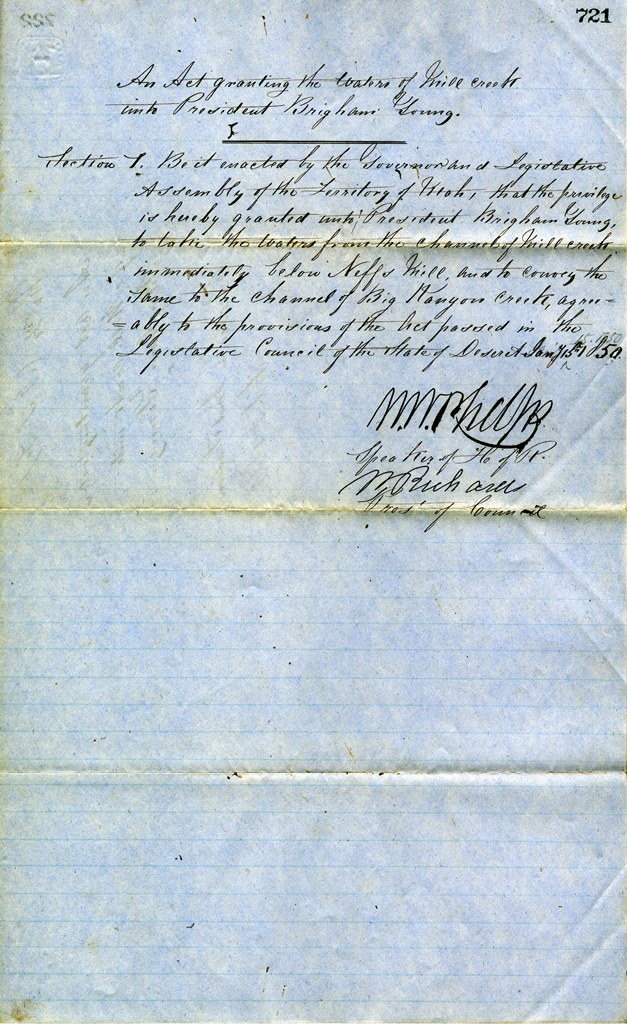 721
An Act granting the waters of Mill creek
unto President Brigham Young.
Section 1. Be it enacted by the Governor and Legislative
Assembly of the Territory of Utah, that the privilege
is hereby granted unto President Brigham Young,
to take the waters from the channel of Mill creek
immediately below Neffs Mill, and to convey the
same to the channel of Big Kanyon creek, agre-
=ably to the provisions of the Act passed in the
Legislative Council of the State of Deseret Jany 15th 1850.
W. W. Phelps
Speaker of H. of R.
W Richards
Prest of Council